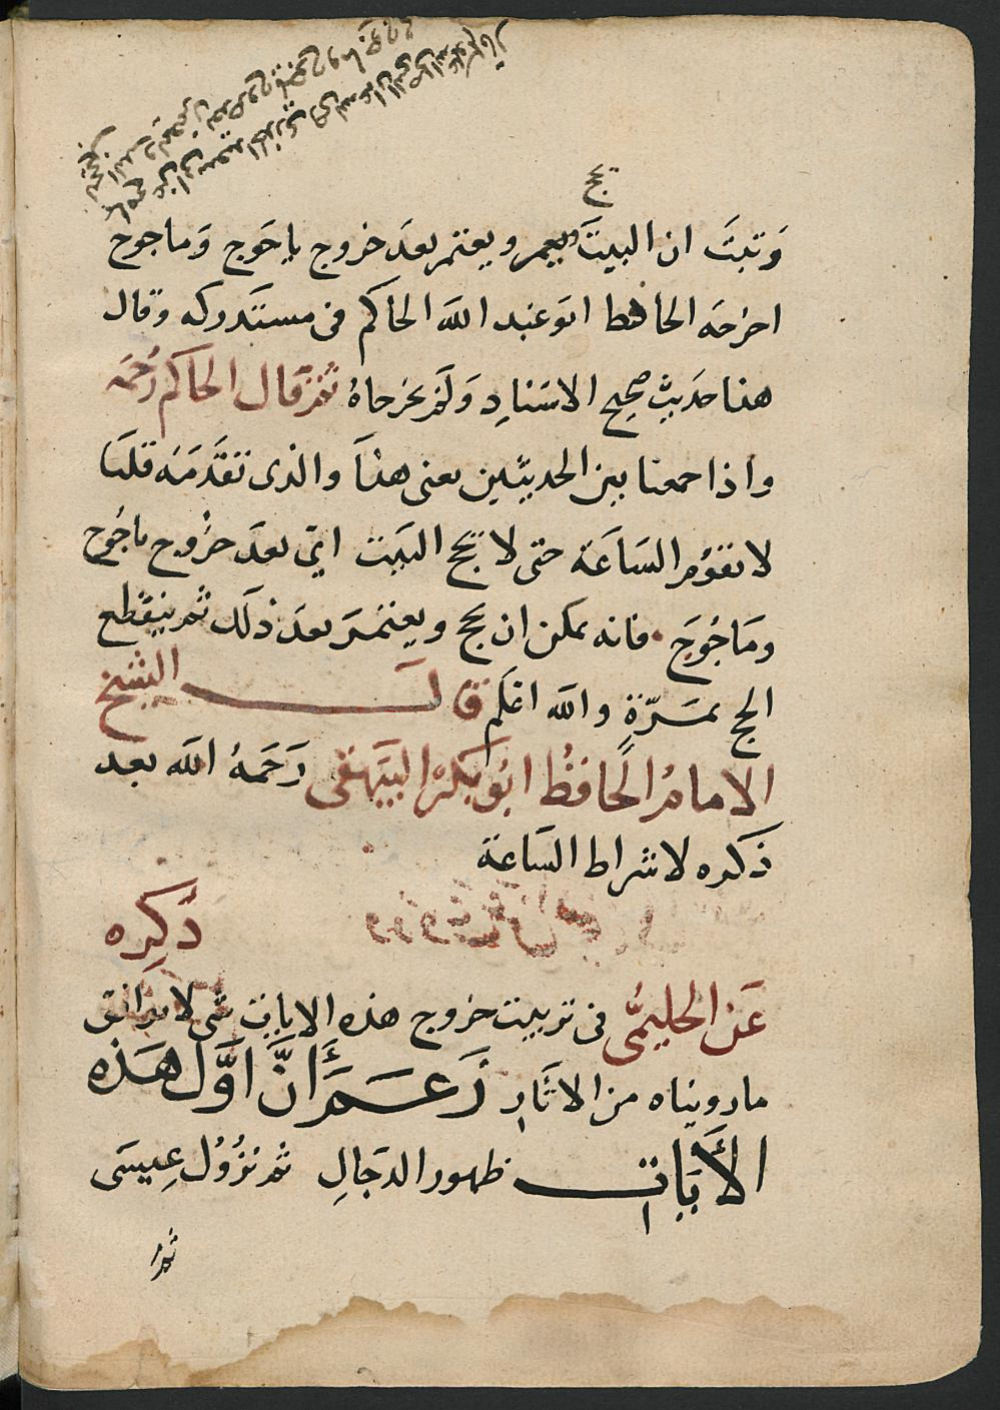 يحج
وَثبتَ ان البيتَ ويعمر ويعتمر بعدَ خروج ياجَوج وَماجوج
اخرجَه الحافظ ابوَ عَبْد اللهَ الحاكم فى مستَدركه وَقال
هذا حَديث صَحِيح الاسَنادِ وَلَم يخرجاهُ ثُمَّ قَال الحاكم رَحمَه
واذا جمعنا بين الحديثين يعنى هذَا والذى تقدَّمَه قلنَا
لا تقوُمُ السَاعَة حتى لا يحج البَيت اىْ بعدَ خرُوج ياجُوج
ومَاجُوجَ فانه يمكن ان يحج ويعتمَرَ بعدَ ذلَك ثم ينقطع
الحج بمَرّةٍ والله اعْلَم قالَ الشيخ
الامامُ الحَافظُ ابُو بَكْر البَيهَقى رَحَمهُ الله بعد
ذَكره لاشراط السَاعة
ذَكِره
عَن الحليمىُّ فى ترتيبَ خروج هذه الايات شى لا يوافق
ما رويناه من الاثَارِ زَعَمَ أَنَّ اوَّل هَذه
الأَيَاتِ ظهور الدجَالِ ثم نزُوُل عِيسَى
ثم